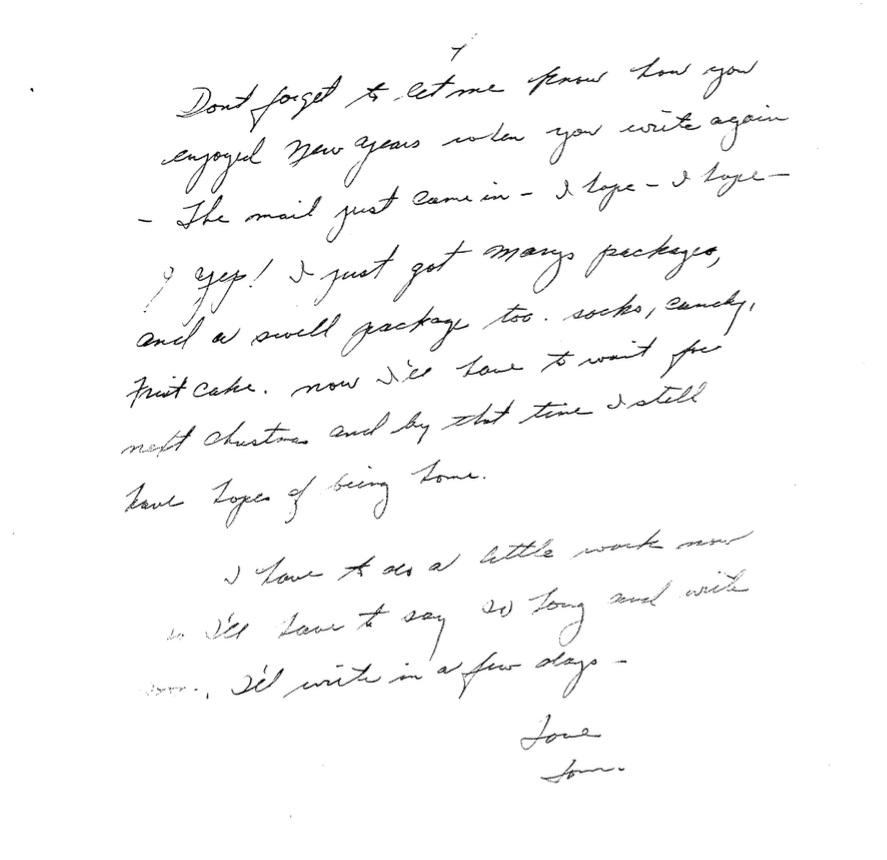 7
Dont forget to let me know how you
enjoyed New Years when you write again
- The mail just came in - I hope - I hope -
Yep! I just got Marys packages,
and a swell package too. socks, candy,
Fruit cake. now I'll have to wait for
next Christmas and by that time I still
have hopes of being home.
I have to do a little work now
so I'll have to say so long and write
soon. I'll write in a few days -
Love
Tom.